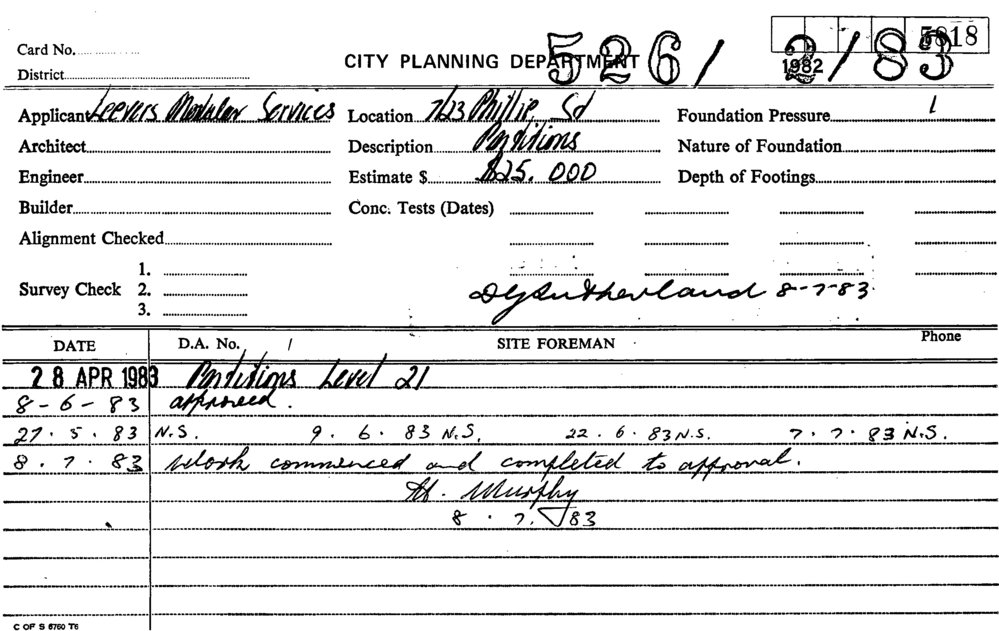 Card No.
CITY PLANNING DEPARTMENT 526/ 2/83 1982 5818
District
Applicant Leevers Modular Services Location 7/23 Phillip Sd Foundation Pressure 1
Architect Description Partitions Nature of Foundation
Engineer Estimate $ $25.000 Depth of Footings
Builder Conc. Tests (Dates)
Alignment Checked
1.
Survey Check 2. DGSutherland 8-7-83
3.
DATE D.A. No. / SITE FOREMAN Phone
28 APR 1983 Partitions Level 21
8-6-83 approved.
27.5.83 N.S. 9.6.83 N.S. 22.6.83 N.S. 7.7.83 N.S.
8.7.83 Work commenced and completed to approval.
Murphy
8.7.83
C OF S 6760 T6